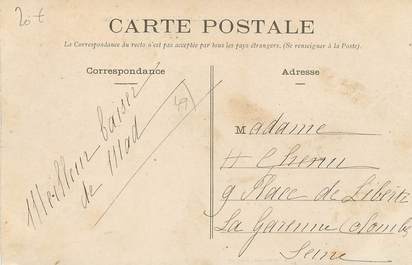 20 t
CARTE POSTALE
La Correspondance du recto n'est pas acceptée par tous les pays étrangers. (Se renseigner à la Poste).
Correspondance
Adresse
Meilleur baiser
de Mad
Madame
9 Place de Liberté
La Garenne Colombe
Seine